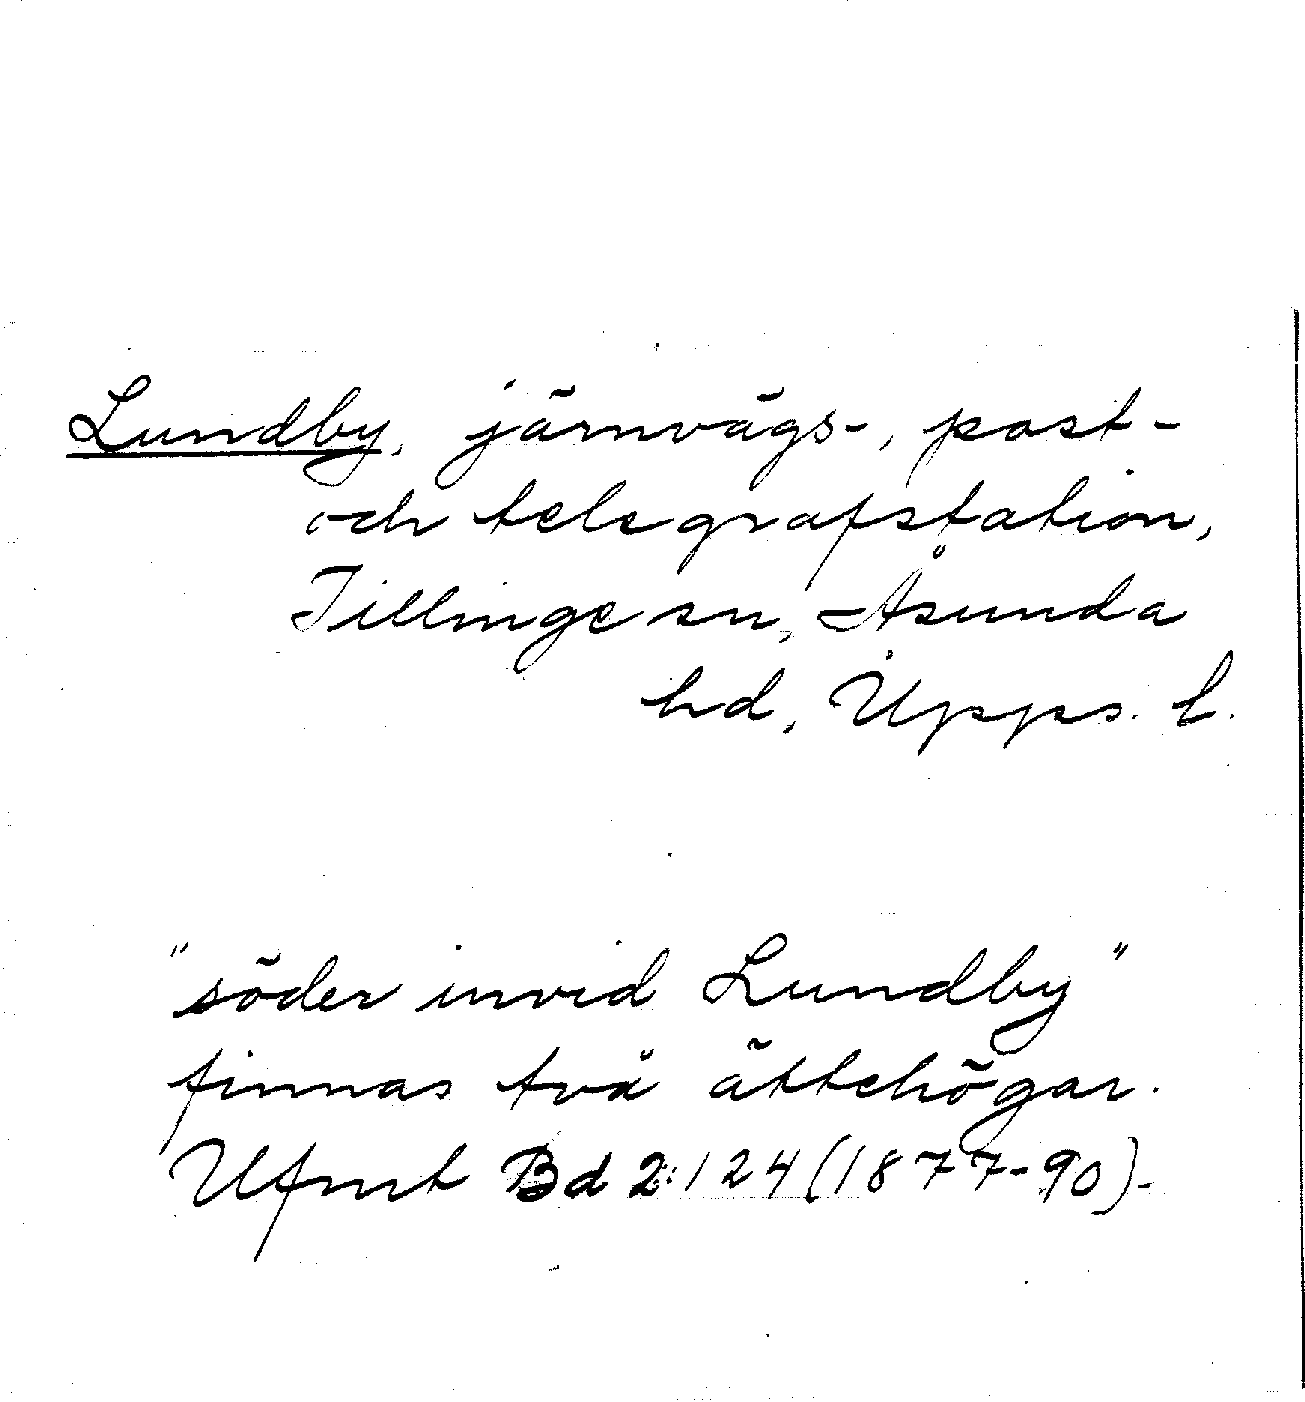 Lundby, järnvägs-, post-
och telegrafstation,
Tillinge sn, Åsunda
hd, Upps. l.
"söder invid Lundby"
finnas två ättehögar.
Ufmt Bd 2:124 (1877-90).